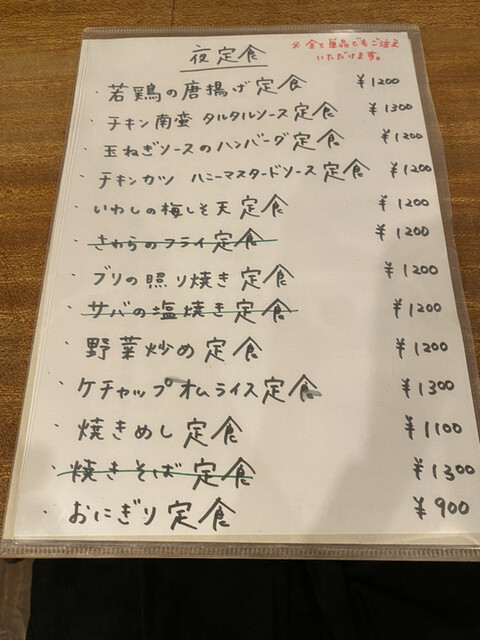 夜定食
※全て単品でもご注文
いただけます。
・若鶏の唐揚げ定食 ¥1200
・チキン南蛮 タルタルソース定食 ¥1300
・玉ねぎソースのハンバーグ定食 ¥1200
・チキンカツ ハニーマスタードソース定食 ¥1200
・いわしの梅しそ天定食 ¥1200
・さわらのフライ定食 ¥1200
・ブリの照り焼き定食 ¥1200
・サバの塩焼き定食 ¥1200
・野菜炒め定食 ¥1200
・ケチャップオムライス定食 ¥1300
・焼きめし定食 ¥1100
・焼きそば定食 ¥1300
・おにぎり定食 ¥900